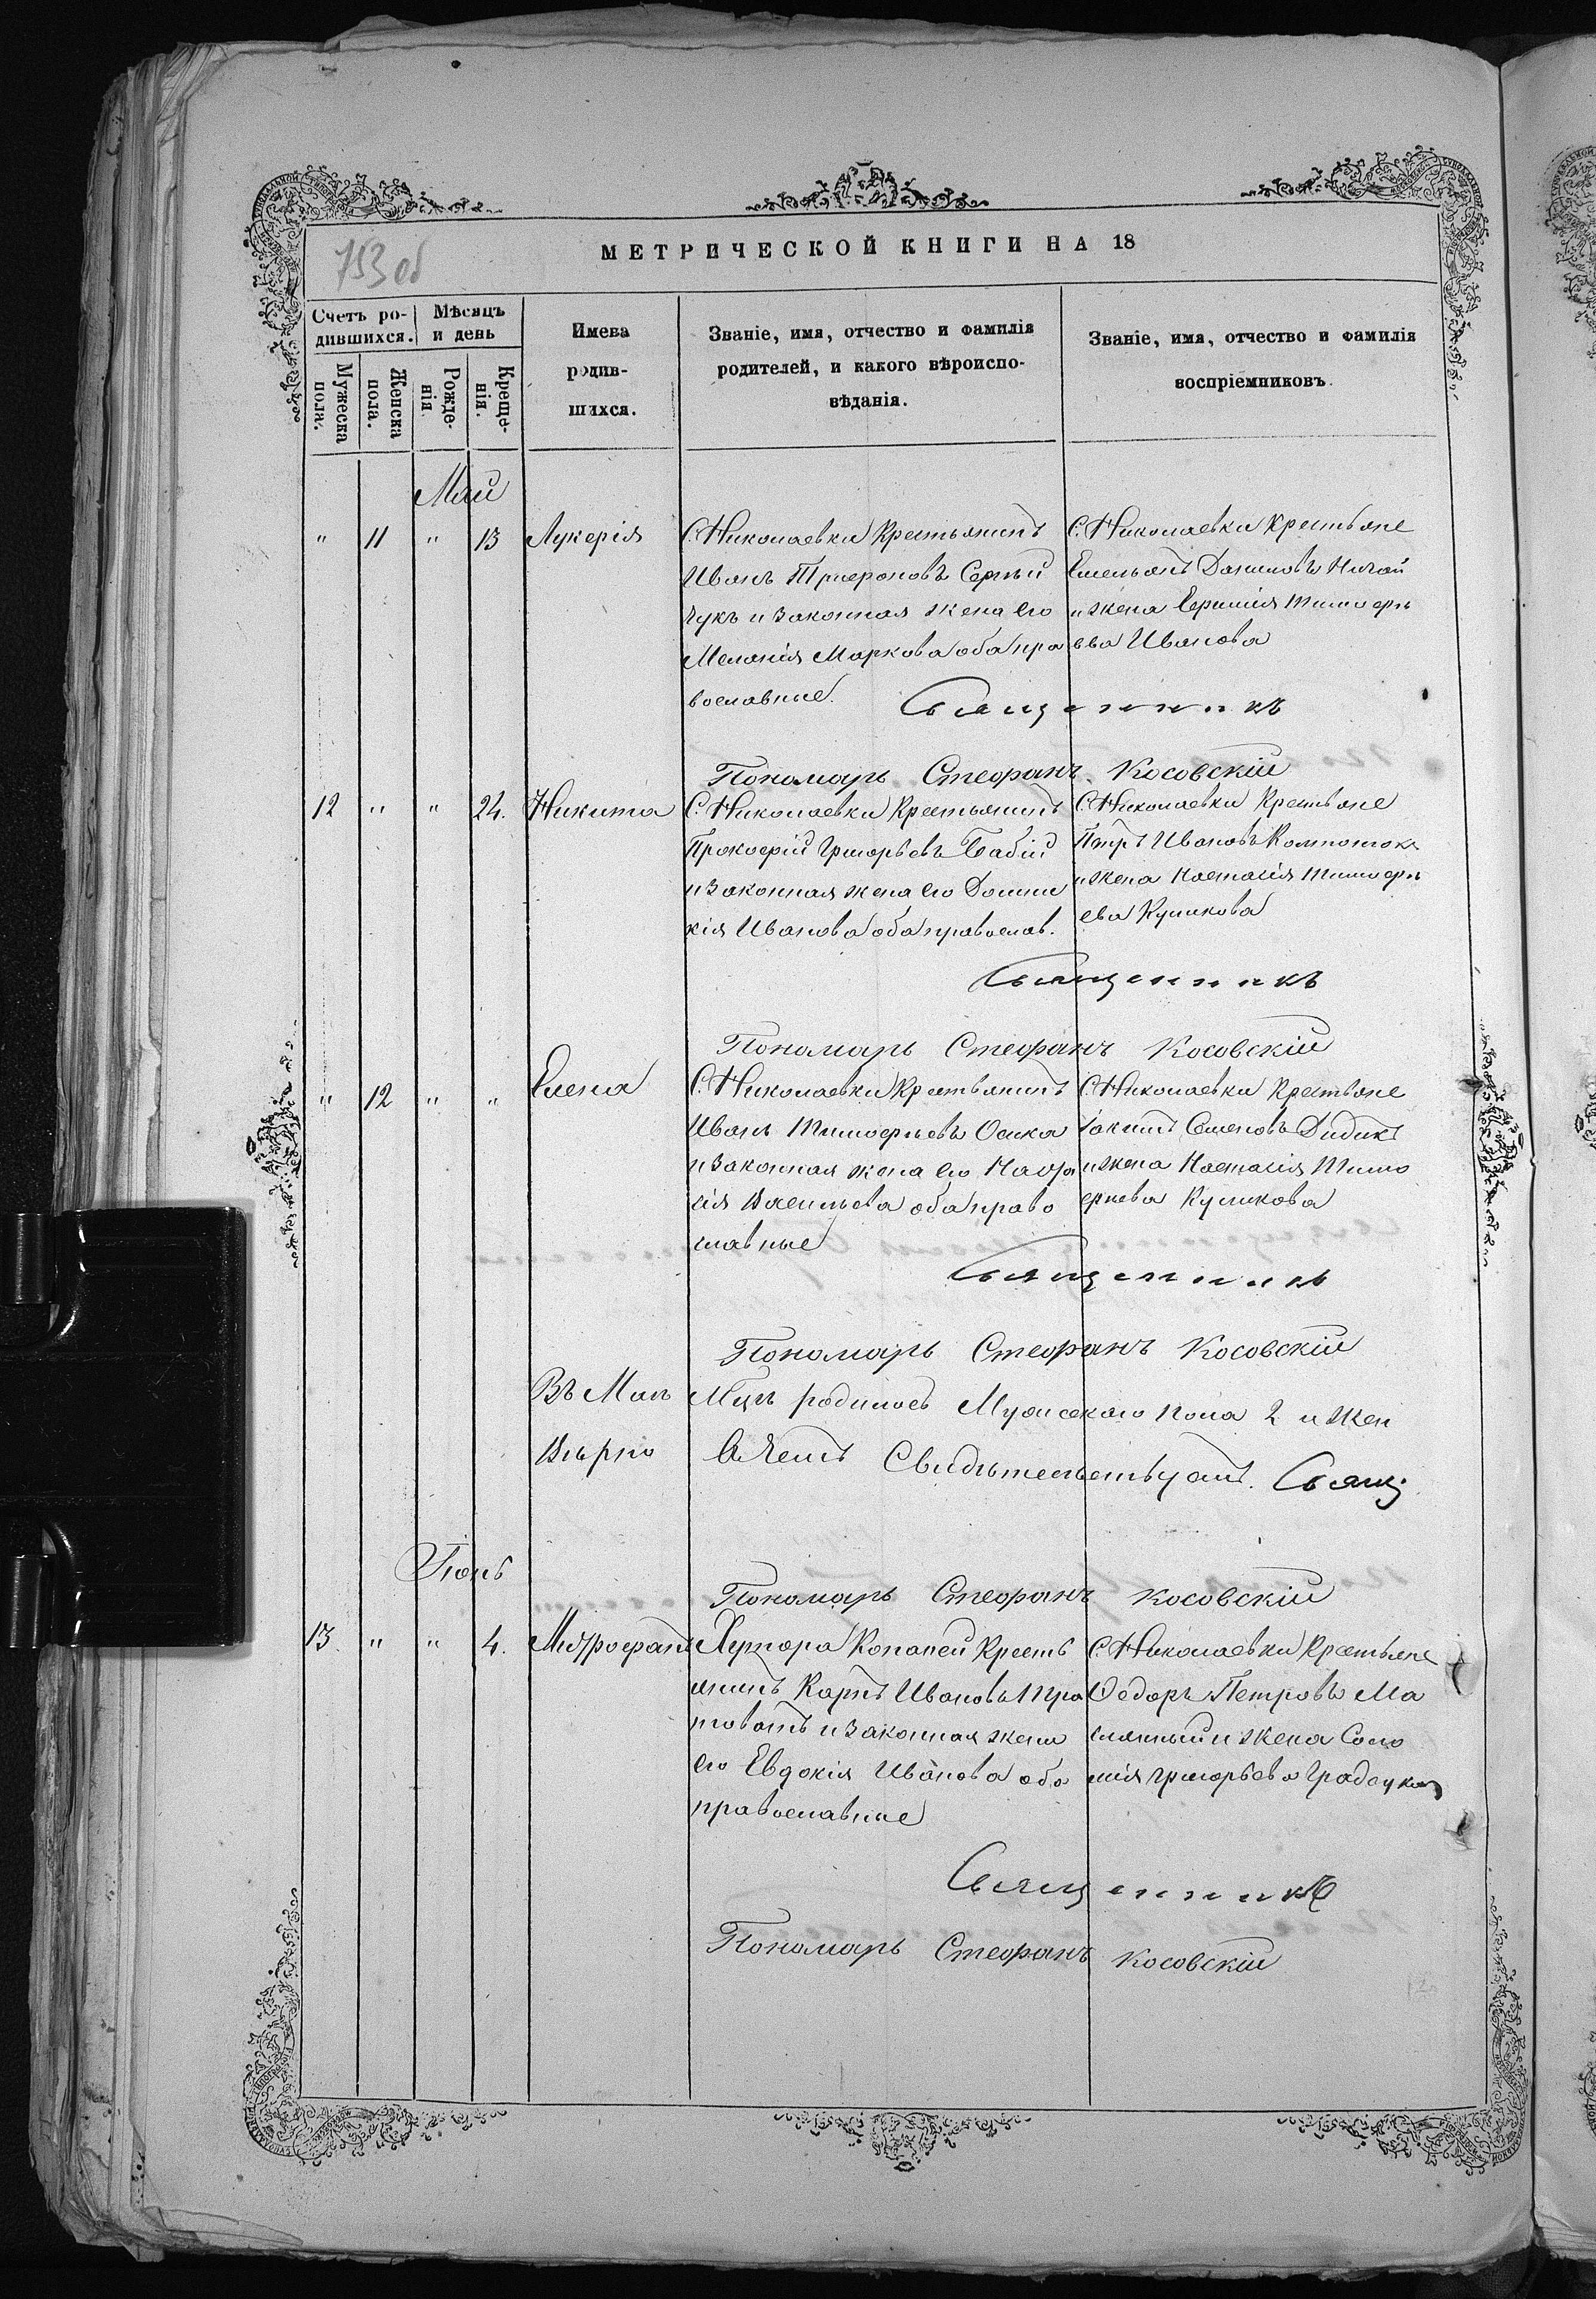 753 об
МЕТРИЧЕСКОЙ КНИГИ НА 18
Счетъ ро-
дившихся.
Мѣсяцъ
и день
Мужеска
пола.
Женска
пола.
Рожде-
нія.
Креще-
нія.
Имена
родив-
шихся.
Званіе, имя, отчество и фамилія
родителей, и какого вѣроиспо-
вѣданія.
Званіе, имя, отчество и фамилія
воспріемниковъ.
Май
" 11 " 13 Лукерія
С. Николаевки Крестьянинъ
Иванъ Трифоновъ
чукъ и законная жена его
Меланія Маркова оба пра
вославные.
С. Николаевки крестьяне
Емельянъ Даниловъ Ничай
и жена Тимофѣ
ева Иванова
Священникъ
Пономарь Стефанъ Косовскій
12 " " 24. Никита
С. Николаевки Крестьянинъ
Прокофій Григорьевъ Бабій
и законная жена его Домни
кія Иванова оба православ.
С. Николаевки Крестьяне
Петръ Ивановъ
и жена Настасія Тимофѣ
ева Куликова
Священникъ
Пономарь Стефанъ Косовскій
" 12 " " Елена
С. Николаевки Крестьянинъ
Иванъ Тимофѣевъ Осика
и законная жена его
сія Васильева оба право
славные
С. Николаевки Крестьяне
Іакимъ Семеновъ Дидикъ
и жена Настасія Тимо
фѣева Куликова
Священникъ
Пономарь Стефанъ Косовскій
Въ Маѣ Мцѣ родилось Мужескаго пола 2 и жен
Вѣрно
О чемъ Свидѣтельствуютъ. Свящ
Іюнь
Пономарь Стефанъ Косовскій
13 " " 4. Митрофанъ
Хутора Копаней Кресть
янинъ Карпъ Ивановъ
и законная жена
его Евдокія Иванова оба
православные
С. Николаевки Крестьяне
Ѳедоръ Петровъ Ма
слянный и жена Соло
мія Григорьева
Священникъ
Пономарь Стефанъ Косовскій